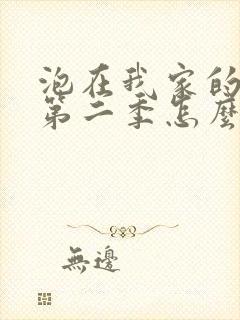 泡在我家的
第二季怎麼
無邊